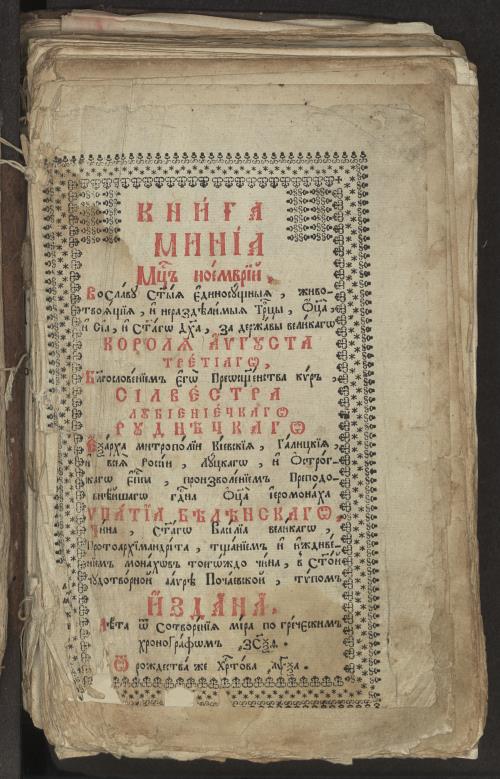 КНИ́ГА
МИНІ́А
Мц҃ъ ное́мврїй,
Во Сла́вꙋ Ст҃ы́ѧ Є҆диносꙋ́щныѧ, живо-
творѧ́щїѧ, и҆ нераздѣ́лимыѧ Трⷪ҇цы, Ѻ҆ц҃а̀,
и҆ Сн҃а, и҆ Ст҃а́гѡ Дх҃а, за держа́вы вели́кагѡ
КОРОЛѦ̀ АѴ́ГꙊСТА
ТРЕ́ТІАГѠ,
Бл҃гослове́нїемъ є҆гѡ̀ Преѡсщ҃е́нства кѵ́ръ,
СІЛВЕ́СТРА
ЛꙊБІЕНІЕ́ЦКАГѠ
РꙊ́ДНѢЦКАГѠ
Є҆ѯа́рха митропо́лїи Кі́евскїѧ, Га́лицкїѧ,
и҆ всеѧ̀ Россі́и, Лꙋ́цкагѡ, и҆ Ѻ҆стро́г-
скагѡ Є҆пⷭ҇кпа, произволе́нїемъ Преподо-
бнѣ́йшагѡ гдⷭ҇и́на Ѻ҆ц҃а̀ і҆еромона́ха
ѴПА́ТІА БѢЛѢ́НСКАГѠ,
Чи́на, Ст҃а́гѡ Васі́лїа вели́кагѡ,
Протоархїмандрі́та, тща́нїемъ и҆ и҆ждиве́-
нїемъ мона́хѡвъ тогѡ́ждо чи́на, в Ст҃о́й
чꙋдотво́рной ла́ѵрѣ Поча́евской, тѵ́помъ
И҆ЗДАНА̀.
Лѣ́та ѿ Сотворе́нїѧ мі́ра по гре́ческимъ
хроногра́фомъ, ҂зсѯ҃ѳ.
Ѿ рождества́ же Хрⷭ҇то́ва, ҂аѱѯ҃а.